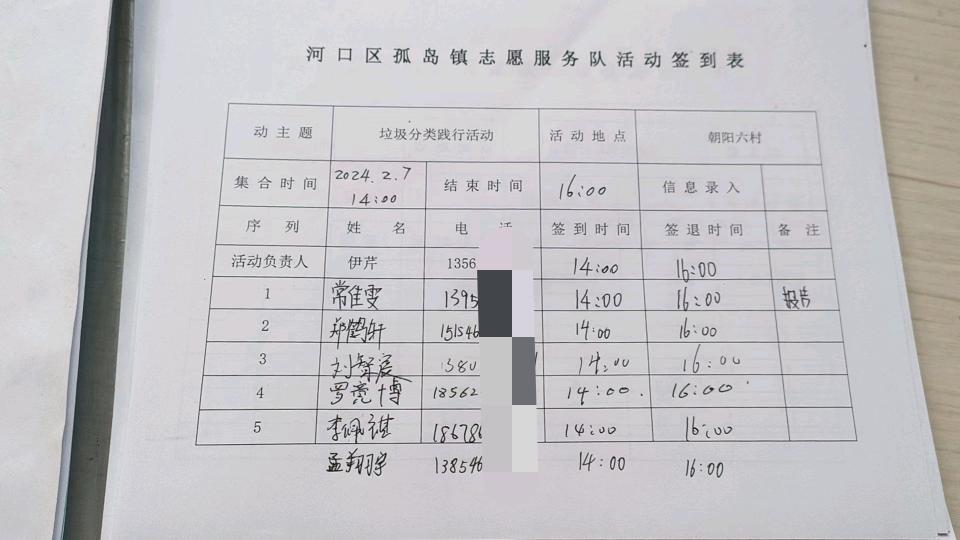 河口区孤岛镇志愿服务队活动签到表
动主题 垃圾分类践行活动 活动地点 朝阳六村
集合时间 2024.2.7 14:00 结束时间 16:00 信息录入
序列 姓名 电话 签到时间 签退时间 备注
活动负责人 伊芹 1356 14:00 16:00
1 常佳雯 1395 14:00 16:00
2 郑鹤轩 151546 14:00 16:00
3 刘 1380 14:00 16:00
4 罗亮博 18562 14:00 16:00
5 李佩祺 186786 14:00 16:00
孟翔宇 138546 14:00 16:00